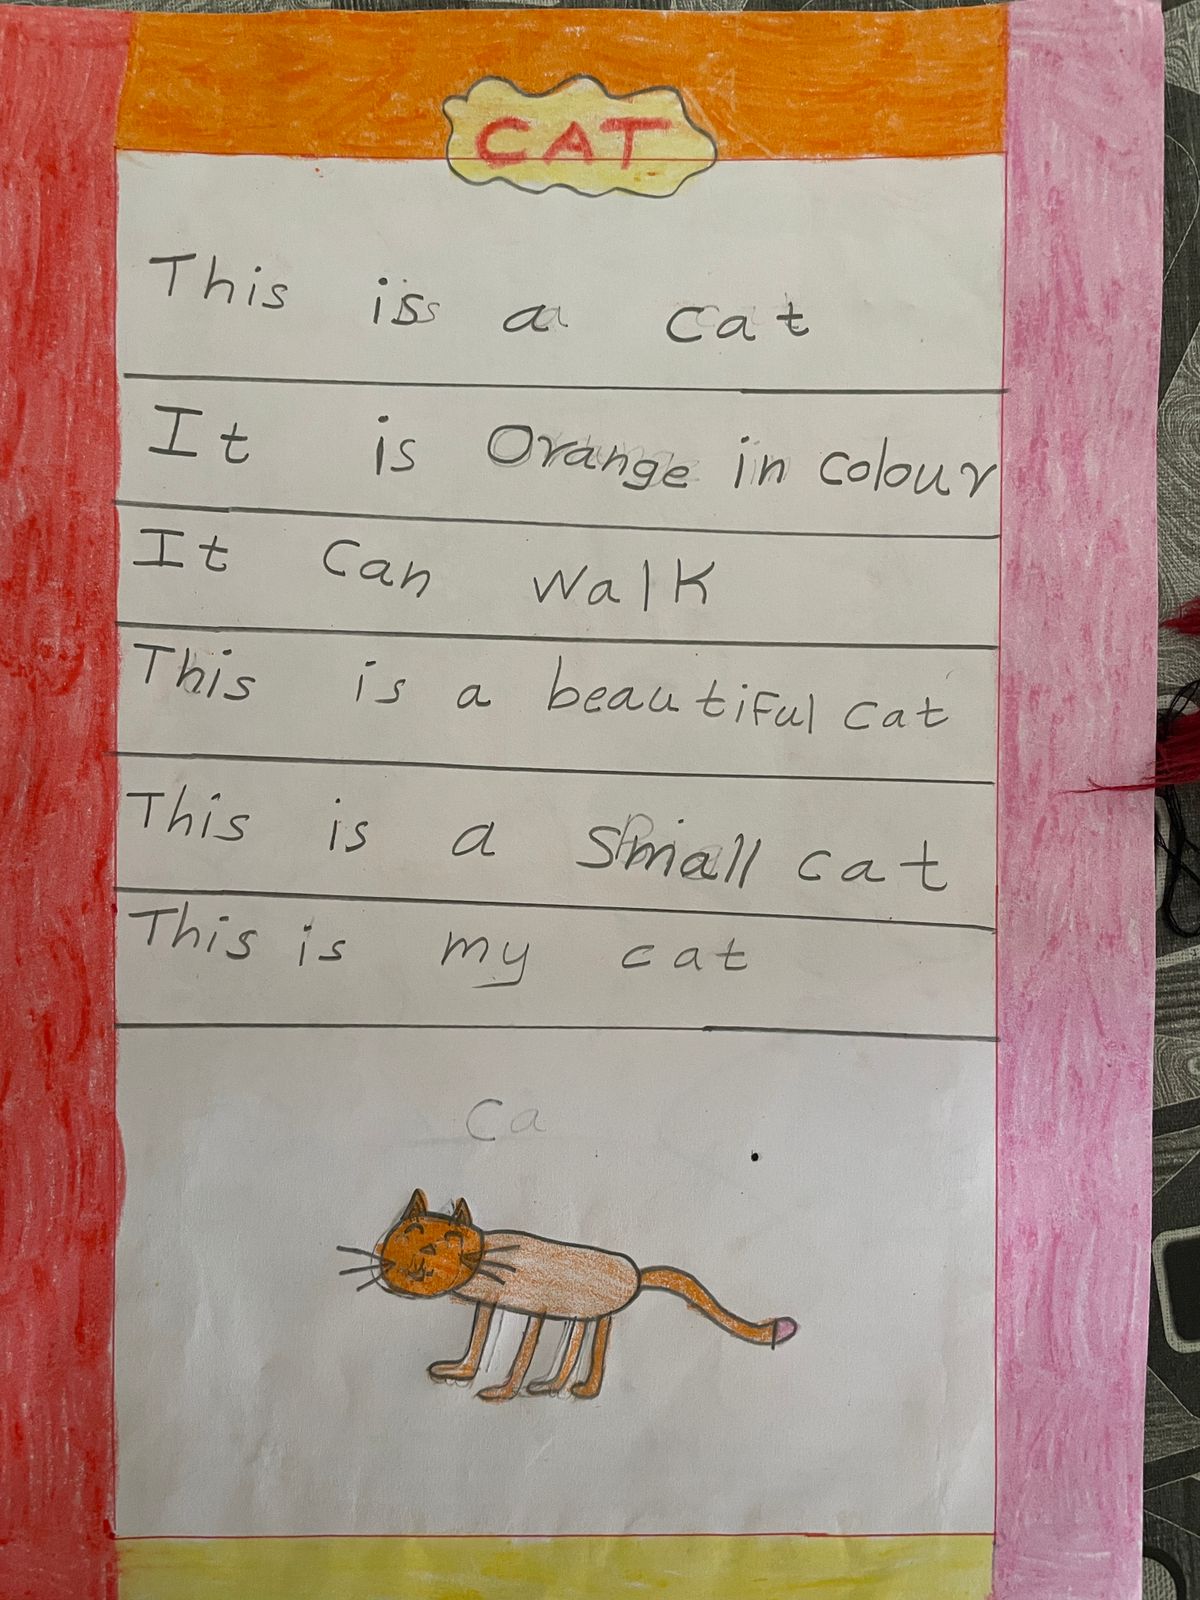 CAT
This is a cat
It is Orange in colour
It can walk
This is a beautiful cat
This is a small cat
This is my cat
Ca